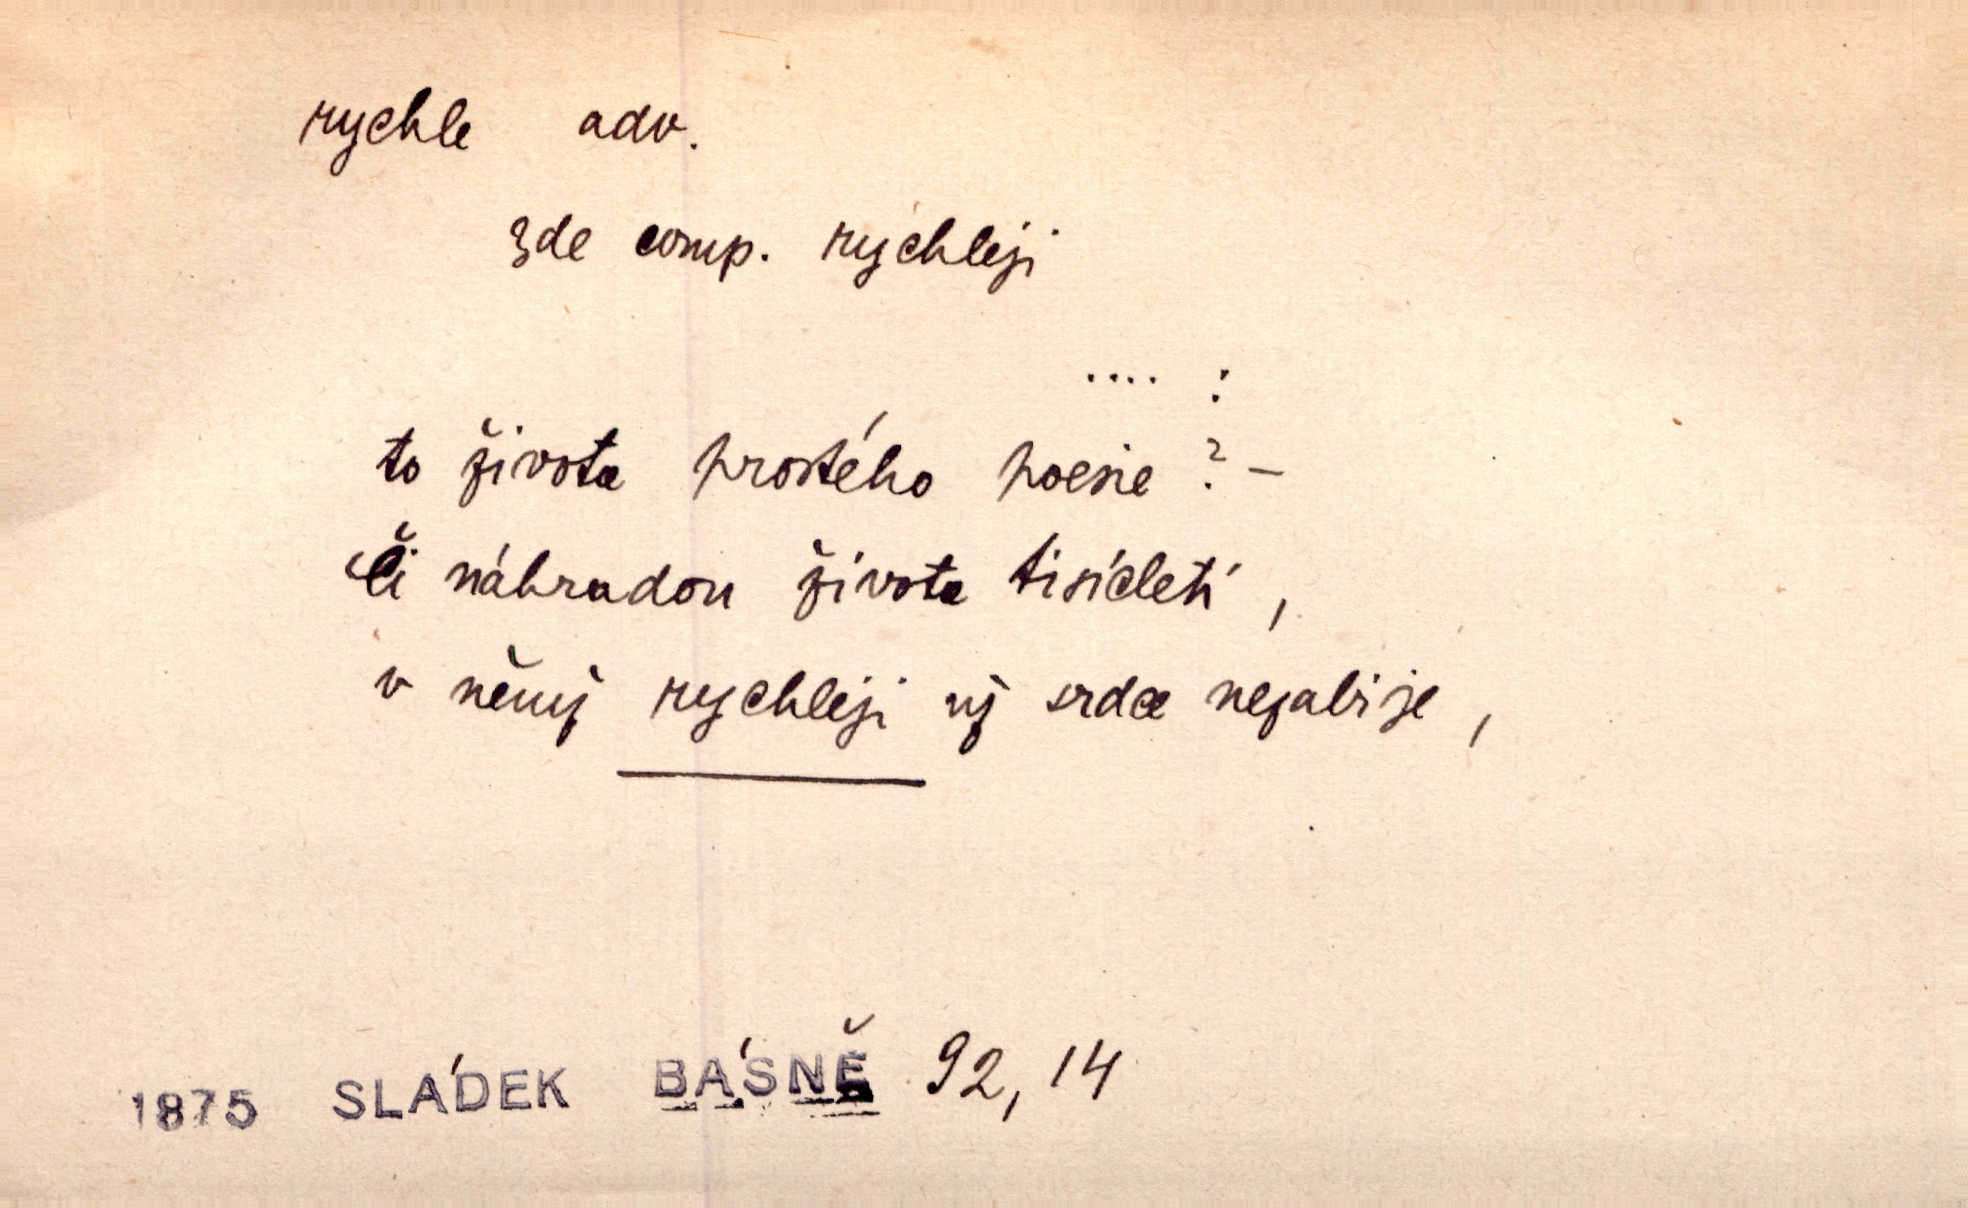 rychle adv.
zde comp. rychleji
.... :
to života prostého poesie ? –
Či náhradou života tisíciletí,
v němž rychleji už srdce nezabije,
1875 SLÁDEK BÁSNĚ 92, 14